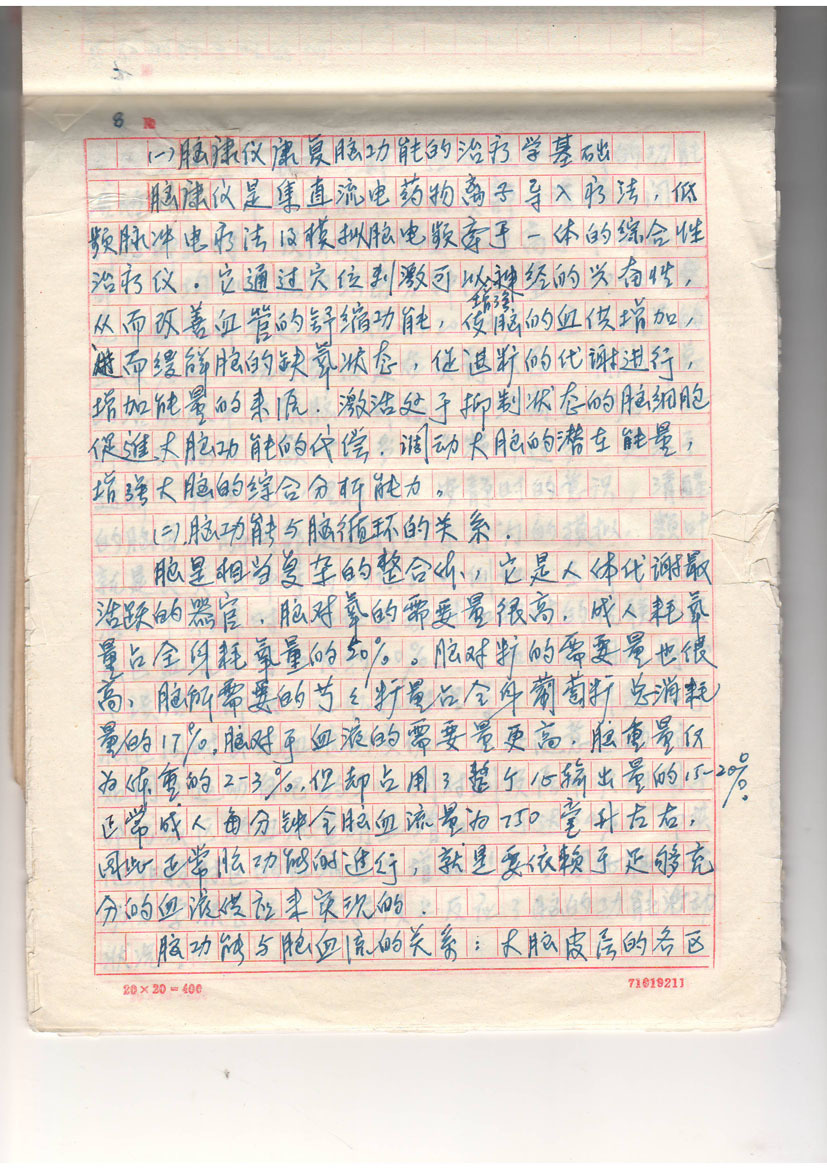 8
(一)脑康仪康复脑功能的治疗学基础
脑康仪是集直流电药物离子导入疗法,低
频脉冲电疗法及模拟脑电频率于一体的综合性
治疗仪。它通过穴位刺激可以增强神经的兴奋性,
从而改善血管的舒缩功能,使脑的血供增加,
进而缓解脑的缺氧状态,促进糖的代谢进行,
增加能量的来源.激活处于抑制状态的脑细胞
促进大脑功能的代偿.调动大脑的潜在能量,
增强大脑的综合分析能力。
(二)脑功能与脑循环的关系.
脑是相当复杂的整合体,它是人体代谢最
活跃的器官.脑对氧的需要量很高.成人耗氧
量占全身耗氧量的50%。脑对糖的需要量也很
高,脑所需要的 量占全身葡萄糖总消耗
量的17%.脑对于血液的需要量更高.脑重量仅
为体重的2-3%.但却占用了整个心输出量的15-20%
正常成人每分钟全脑血流量为750毫升左右,
因此正常脑功能的进行,就是要依赖于足够充
分的血液供应来实现的.
脑功能与脑血流的关系:大脑皮层的各区
20×20=400
71019211